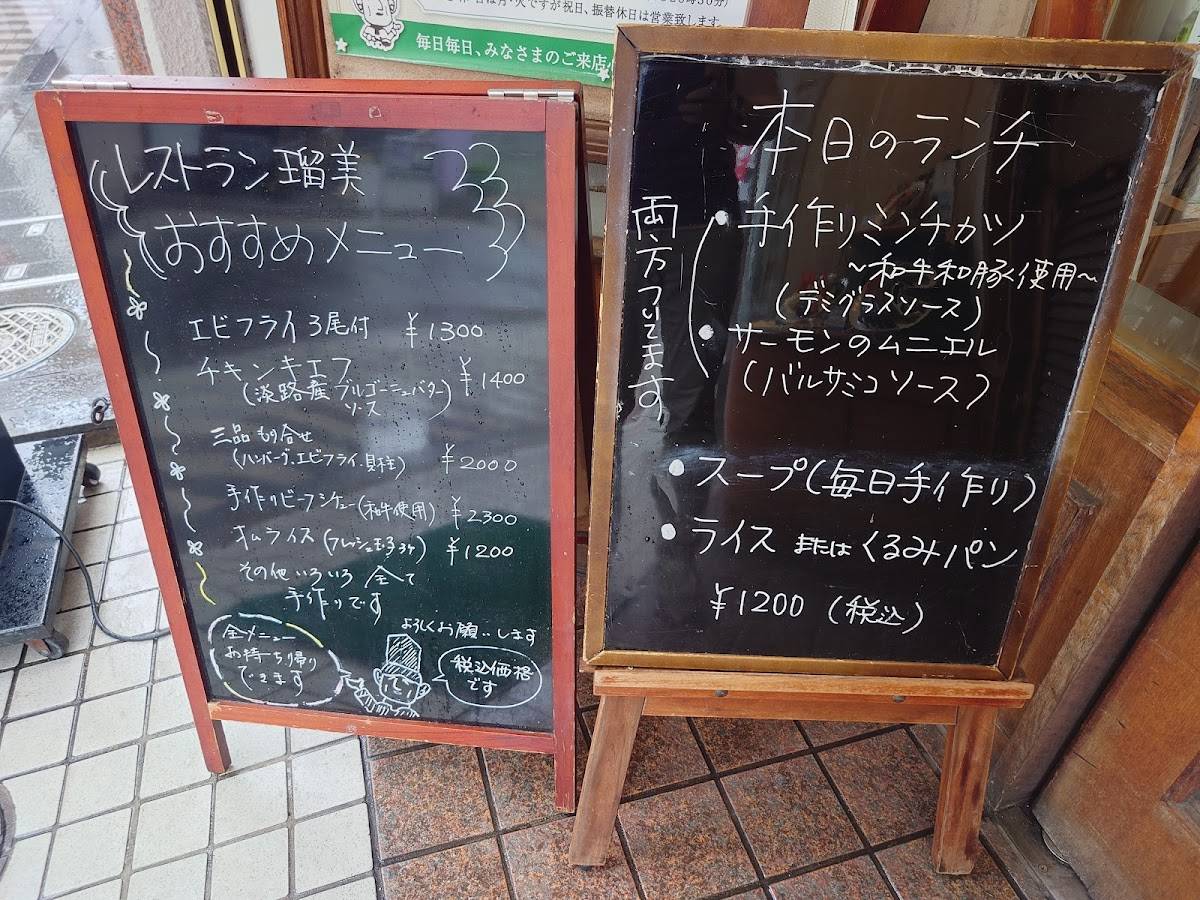 日は月・火ですが祝日、振替休日は営業致します
毎日毎日、みなさまのご来店
レストラン瑠美
おすすめメニュー
エビフライ3尾付 ¥1300
チキンキエフ ¥1400
(淡路産ブルゴーニュバター
ソース)
三品もり合せ
(ハンバーグ.エビフライ.貝柱) ¥2000
手作りビーフシチュー(和牛使用) ¥2300
オムライス(フレッシュ玉子3ケ) ¥1200
その他いろいろ全て
手作りです
全メニュー
お持ち帰り
できます
よろしくお願いします
税込価格
です
本日のランチ
両方ついてます
・手作りミンチカツ
~和牛和豚使用~
(デミグラスソース)
・サーモンのムニエル
(バルサミコソース)
・スープ(毎日手作り)
・ライス またはくるみパン
¥1200(税込)